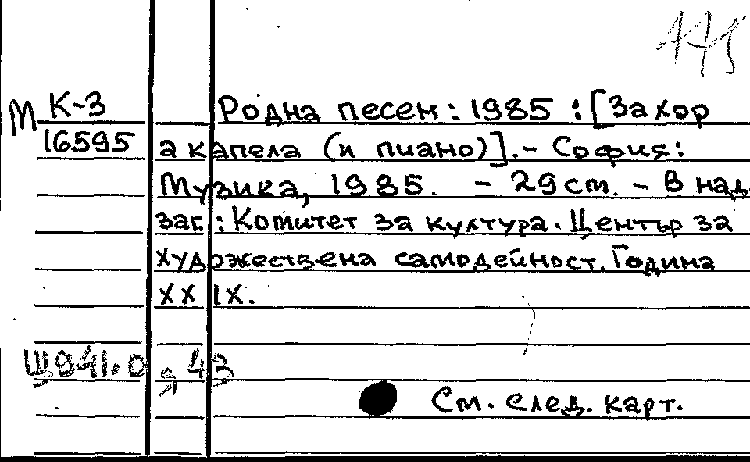 175
М К-3 Родна песен: 1985 : [За хор
16595 а капела (и пиано)]. - София:
Музика, 1985. - 29 ст. - В над
заг.: Комитет за култура. Център за
художествена самодейност. Година
XXIX.
Щ941.0 я 43
См. след. карт.